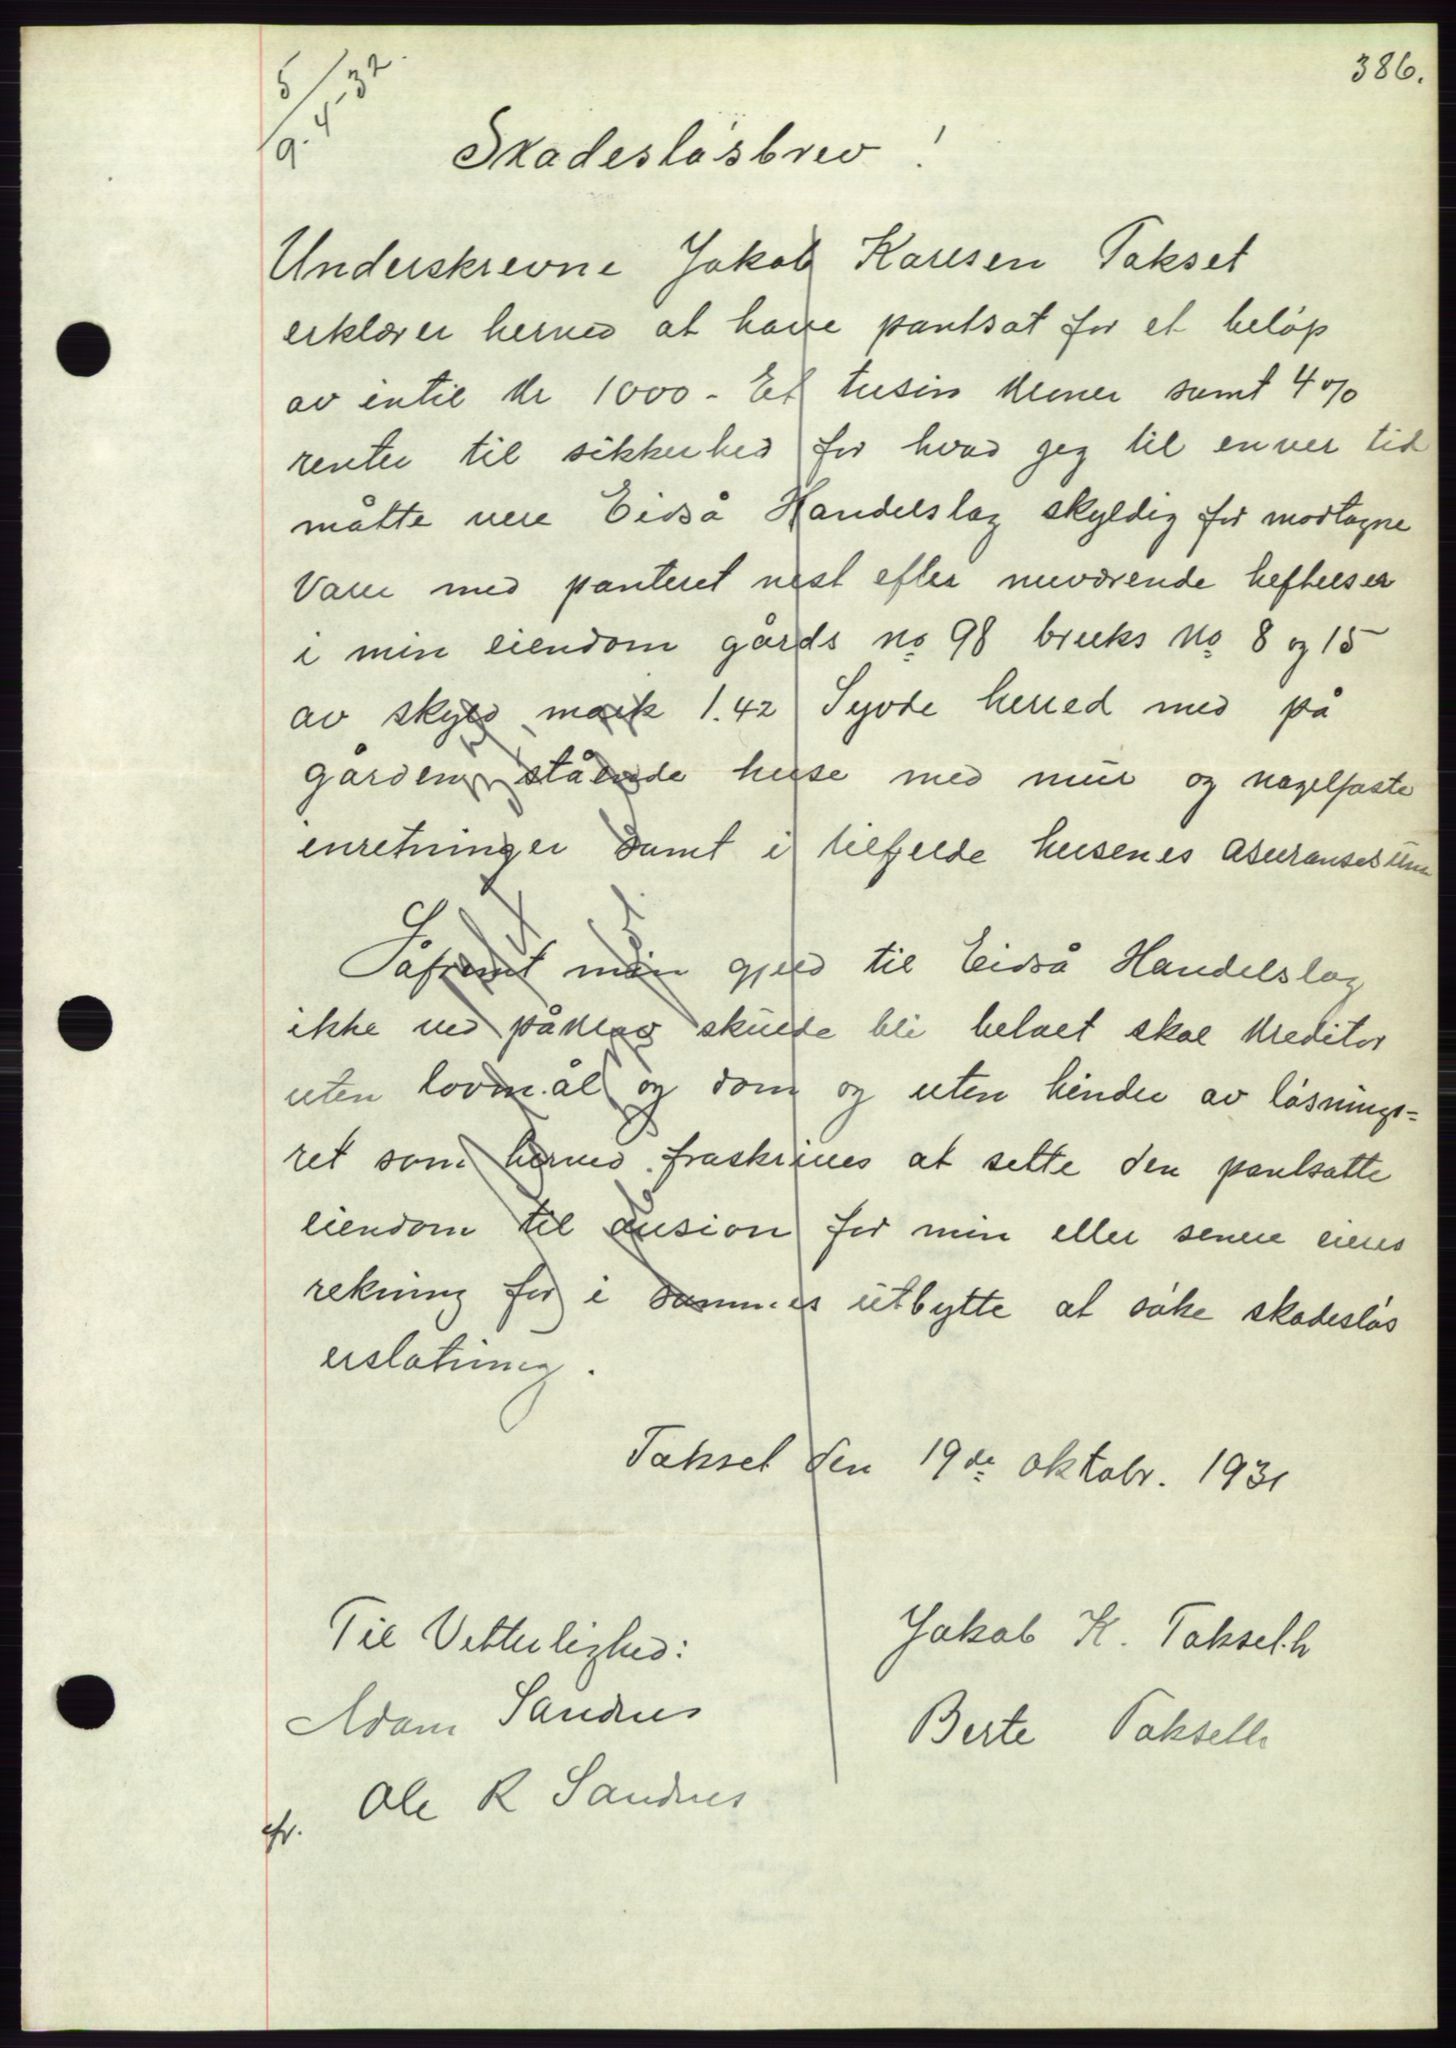 386.
5/9-4-32.
Skadesløsbrev!
Underskrevne Jakob Karlsen Takset
erklærer herved at have pantsat for et beløp
av intil kr 1000 - Et tusin kroner samt 4 %
renter til sikkerhed for hvad jeg til enver tid
måtte vere Eidså Handelslag skyldig for modtagne
Varer med panteret nest efter nuværende heftelser
i min eiendom gårds no 98 bruks no 8 og 15
av skyld mark 1.42 Syvde herred med på
gården stående huse med mur og nagelfaste
inretninger samt i tilfelde husenes asuransesum
Såfremt min gjeld til Eidså Handelslag
ikke ved påkrav skulde bli betalt skal kreditor
uten lovmål og dom og uten hinder av løsnings=
ret som herved fraskrives at sette den pantsatte
eiendom til ausion for min eller senere eieres
rekning for i sammes utbytte at søke skadesløs
erstatning.
Takset den 19de oktobr. 1931
Til Vitterlighed:
Jakob K. Takseth
Adam Sandnes
Berte Takseth
Ole R Sandnes
cfr.